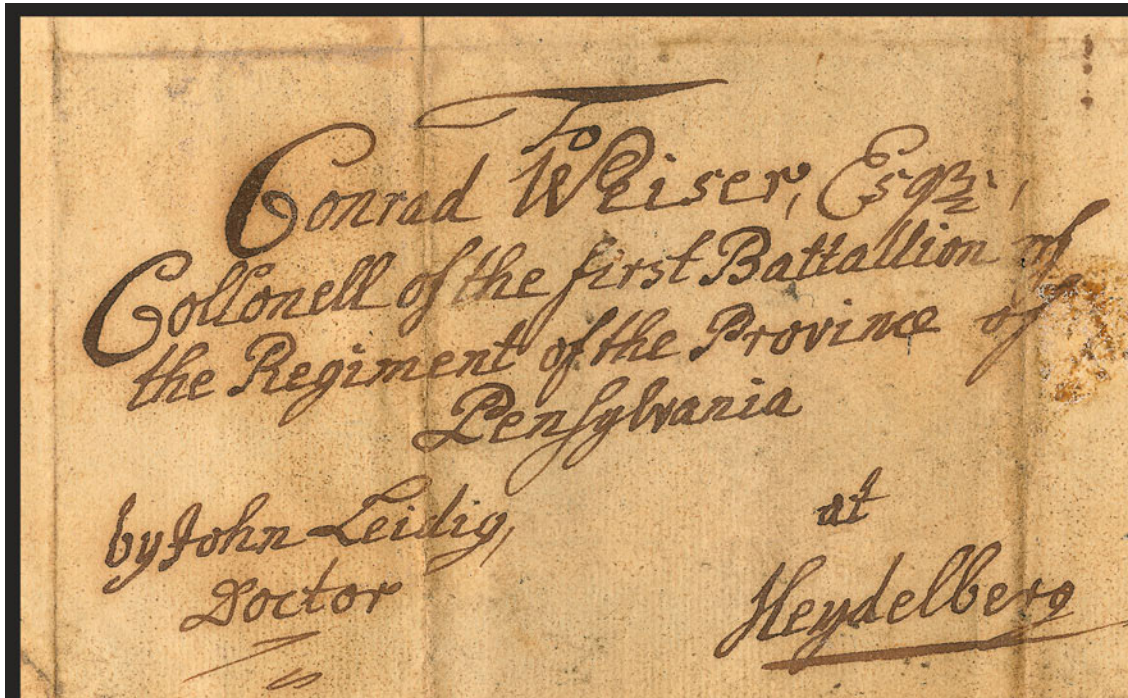 To
Conrad Weiser, Esqr.,
Collonell of the first Battallion of
the Regiment of the Province of
Pensylvania
by John Leidig,
Doctor
at
Heydelberg